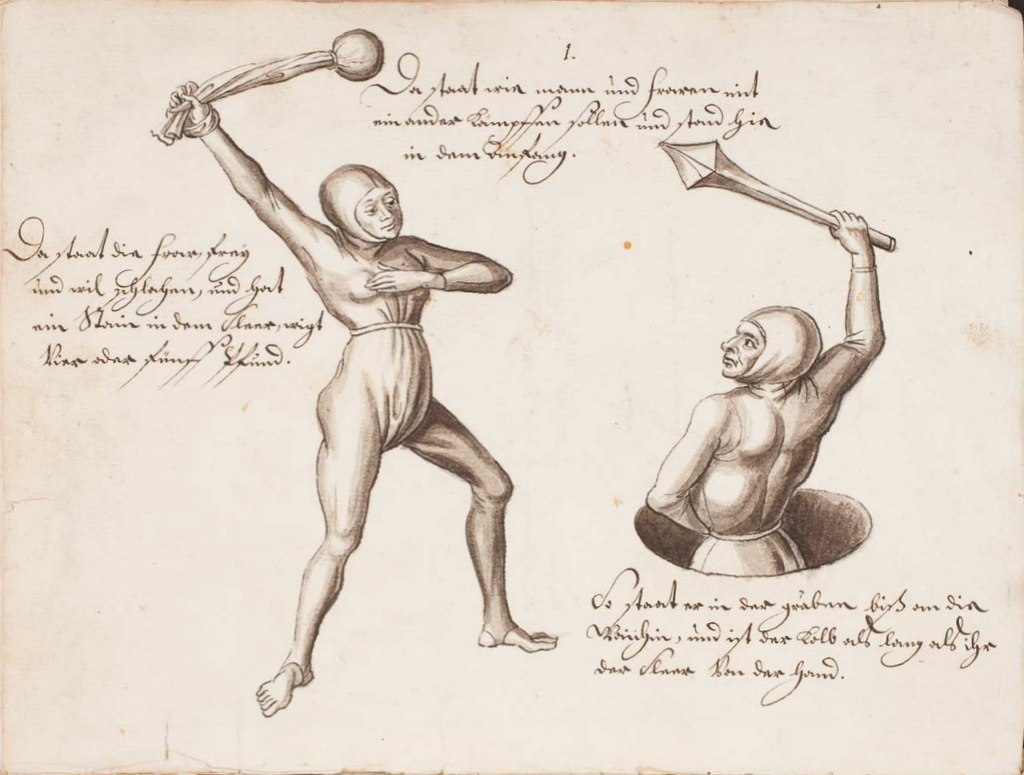 1.
Da staat wie mann und frawen mit
ein ander kämpffen söllen und stond hie
in dem Anfang.
Da staat die fraw frey
und wil schlachen, und hat
ein Stain in dem sleer, wigt
Vier oder fünff Pfund.
So staat er in der grüben biß an die
Waichin, und ist der Kolb als lang als ihr
der sleer Von der hand.